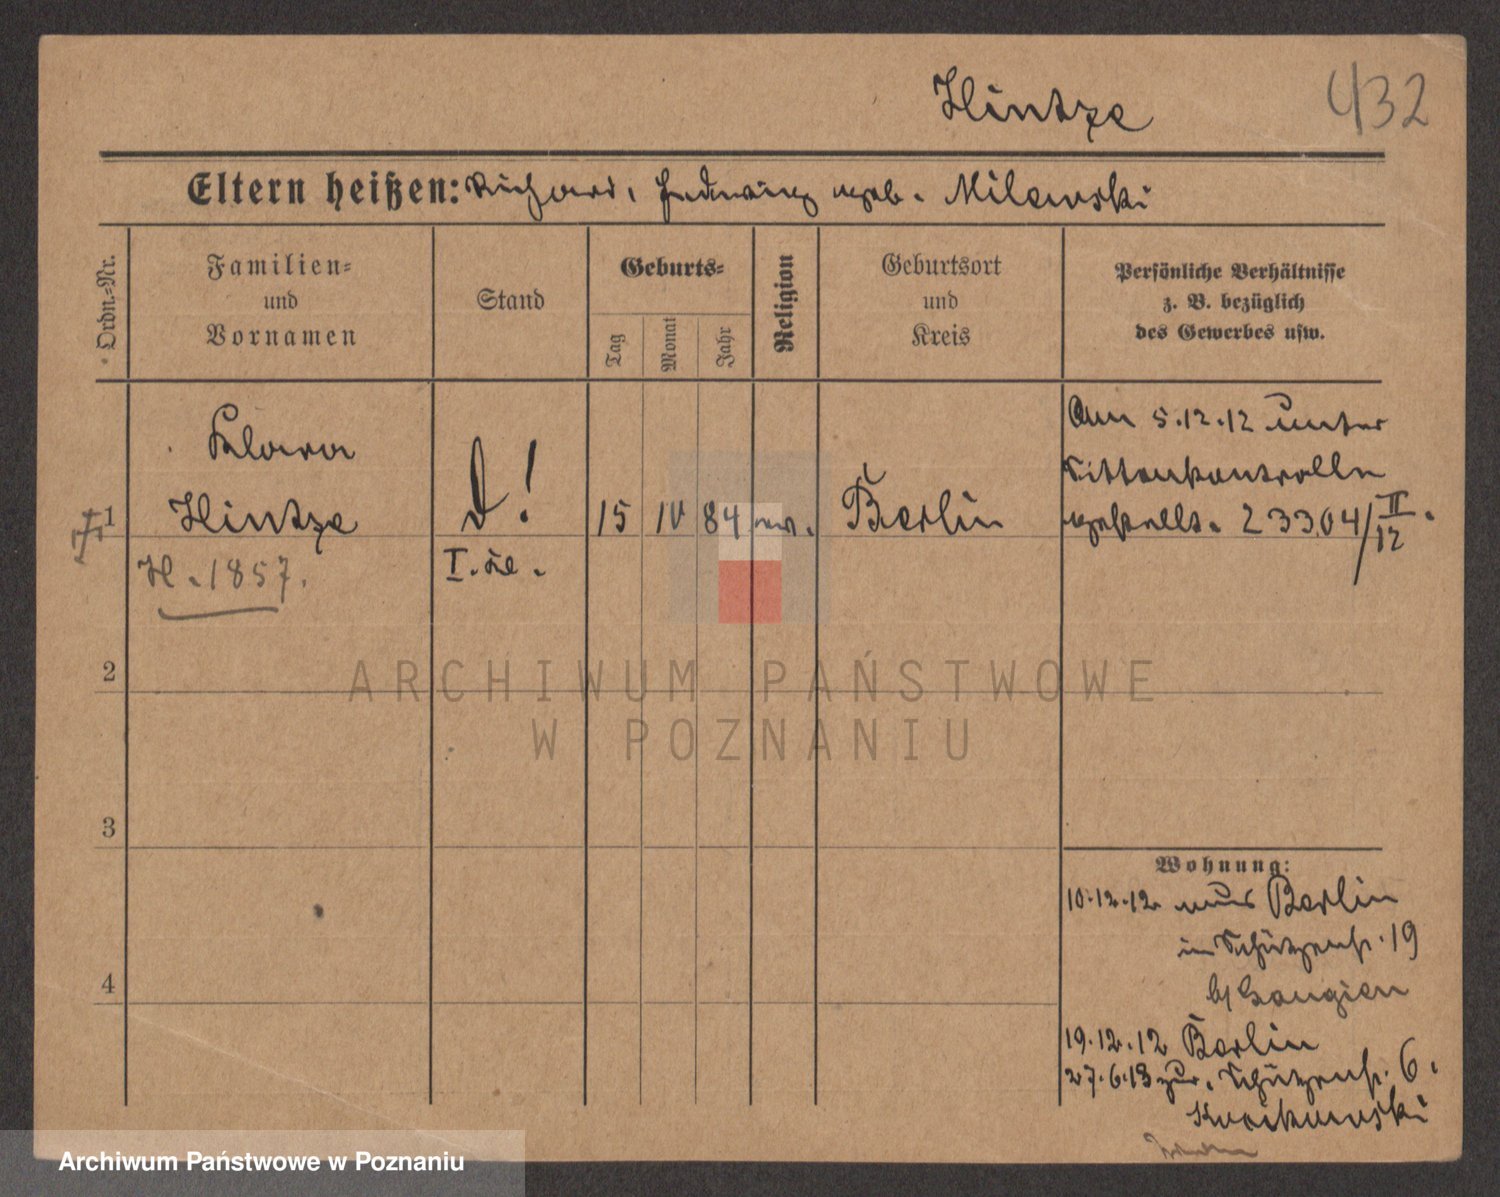 Hintze
432
Eltern heißen: Richard, Hedwig geb. Milewski
Ordn.-Nr.
Familien-
und
Vornamen
Stand
Geburts-
Tag
Monat
Jahr
Religion
Geburtsort
und
Kreis
Persönliche Verhältnisse
z. B. bezüglich
des Gewerbes usw.
1
Klara
Hintze
H. 1857.
D!
15
IV
84
ev.
Berlin
Am 5.12.12 unter
Sittenkontrolle
gestellt. 23304/II/12.
2
3
4
Wohnung:
10.12.12 aus Berlin
in Schützenstr. 19
b/
19.12.12 Berlin
27.6.13 zur. Schützenstr. 6.
ARCHIWUM PAŃSTWOWE
W POZNANIU
Archiwum Państwowe w Poznaniu